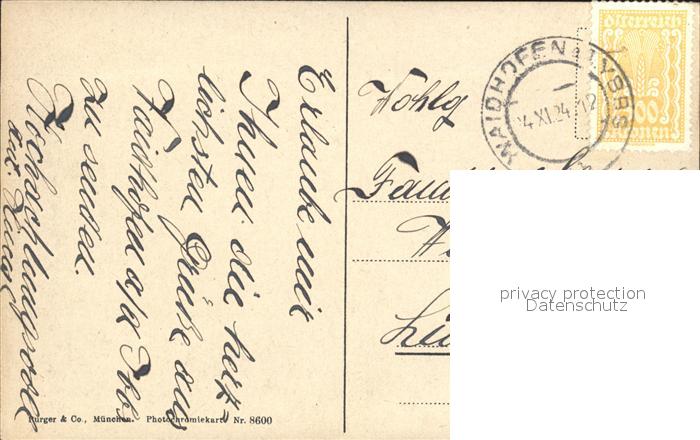 Erlaube mir
Ihnen die herz-
lichsten Grüße aus
Waidhofen a/d Ybbs
zu senden.
Hochachtungsvoll
Burger & Co., München. Photochromiekarte Nr. 8600
Wohlg
Fam
Österreich
Kronen
WAIDHOFEN A.D. YBBS
4.XI.24 12
privacy protection
Datenschutz